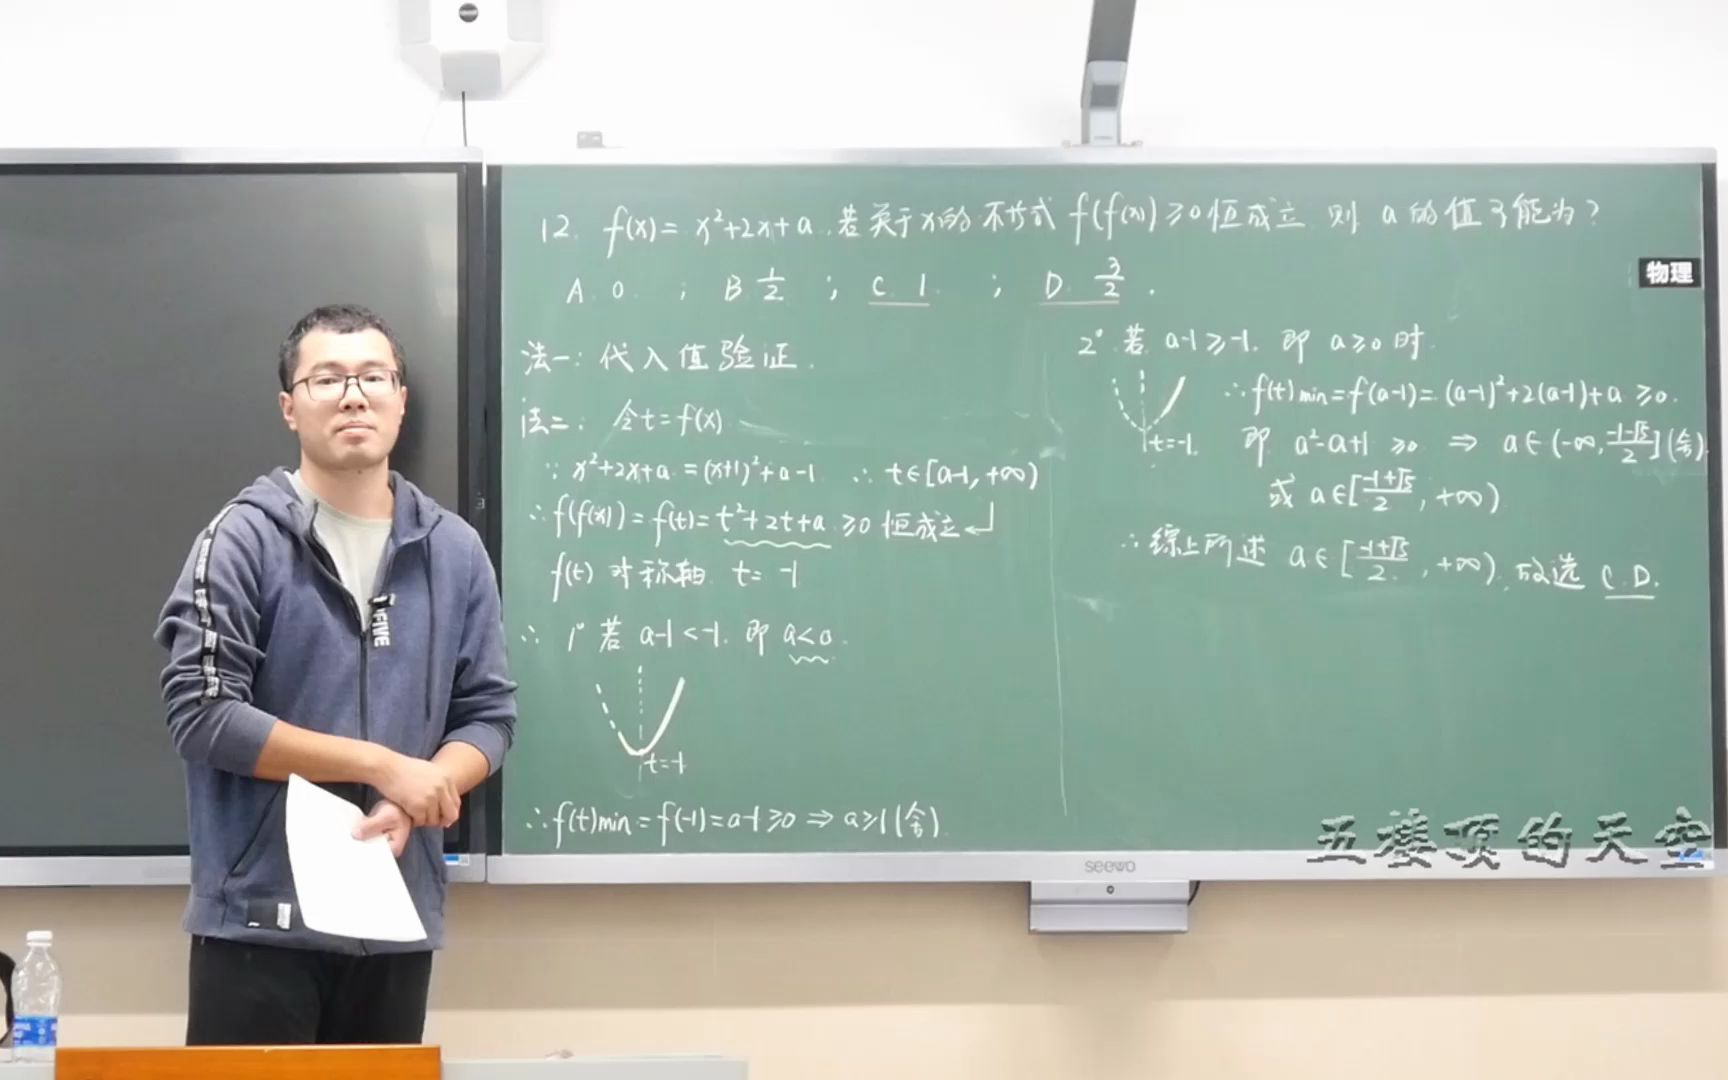 12. f(x) = x²+2x+a. 若关于x的不等式 f(f(x)) ≥0恒成立 则 a的值可能为?
A. 0 ; B. 1/2 ; C. 1 ; D. 3/2 .
法一: 代入值验证.
法二: 令t=f(x)
∵ x²+2x+a = (x+1)²+a-1 ∴ t∈[a-1, +∞)
∴ f(f(x)) = f(t) = t²+2t+a ≥0 恒成立
f(t) 对称轴 t= -1
∴ 1° 若 a-1<-1. 即 a<0.
t=-1
∴ f(t)min = f(-1) = a-1 ≥0 ⇒ a≥1 (舍)
2° 若 a-1≥-1. 即 a≥0 时.
∴ f(t)min = f(a-1) = (a-1)²+2(a-1)+a ≥0.
t=-1.
即 a²-a+1 ≥0 ⇒ a∈(-∞, (-1-√5)/2] (舍)
或 a∈[(-1+√5)/2, +∞)
∴ 综上所述 a∈[(-1+√5)/2, +∞). 故选 C.D.
物理
FIVE
五楼顶的天空
seewo